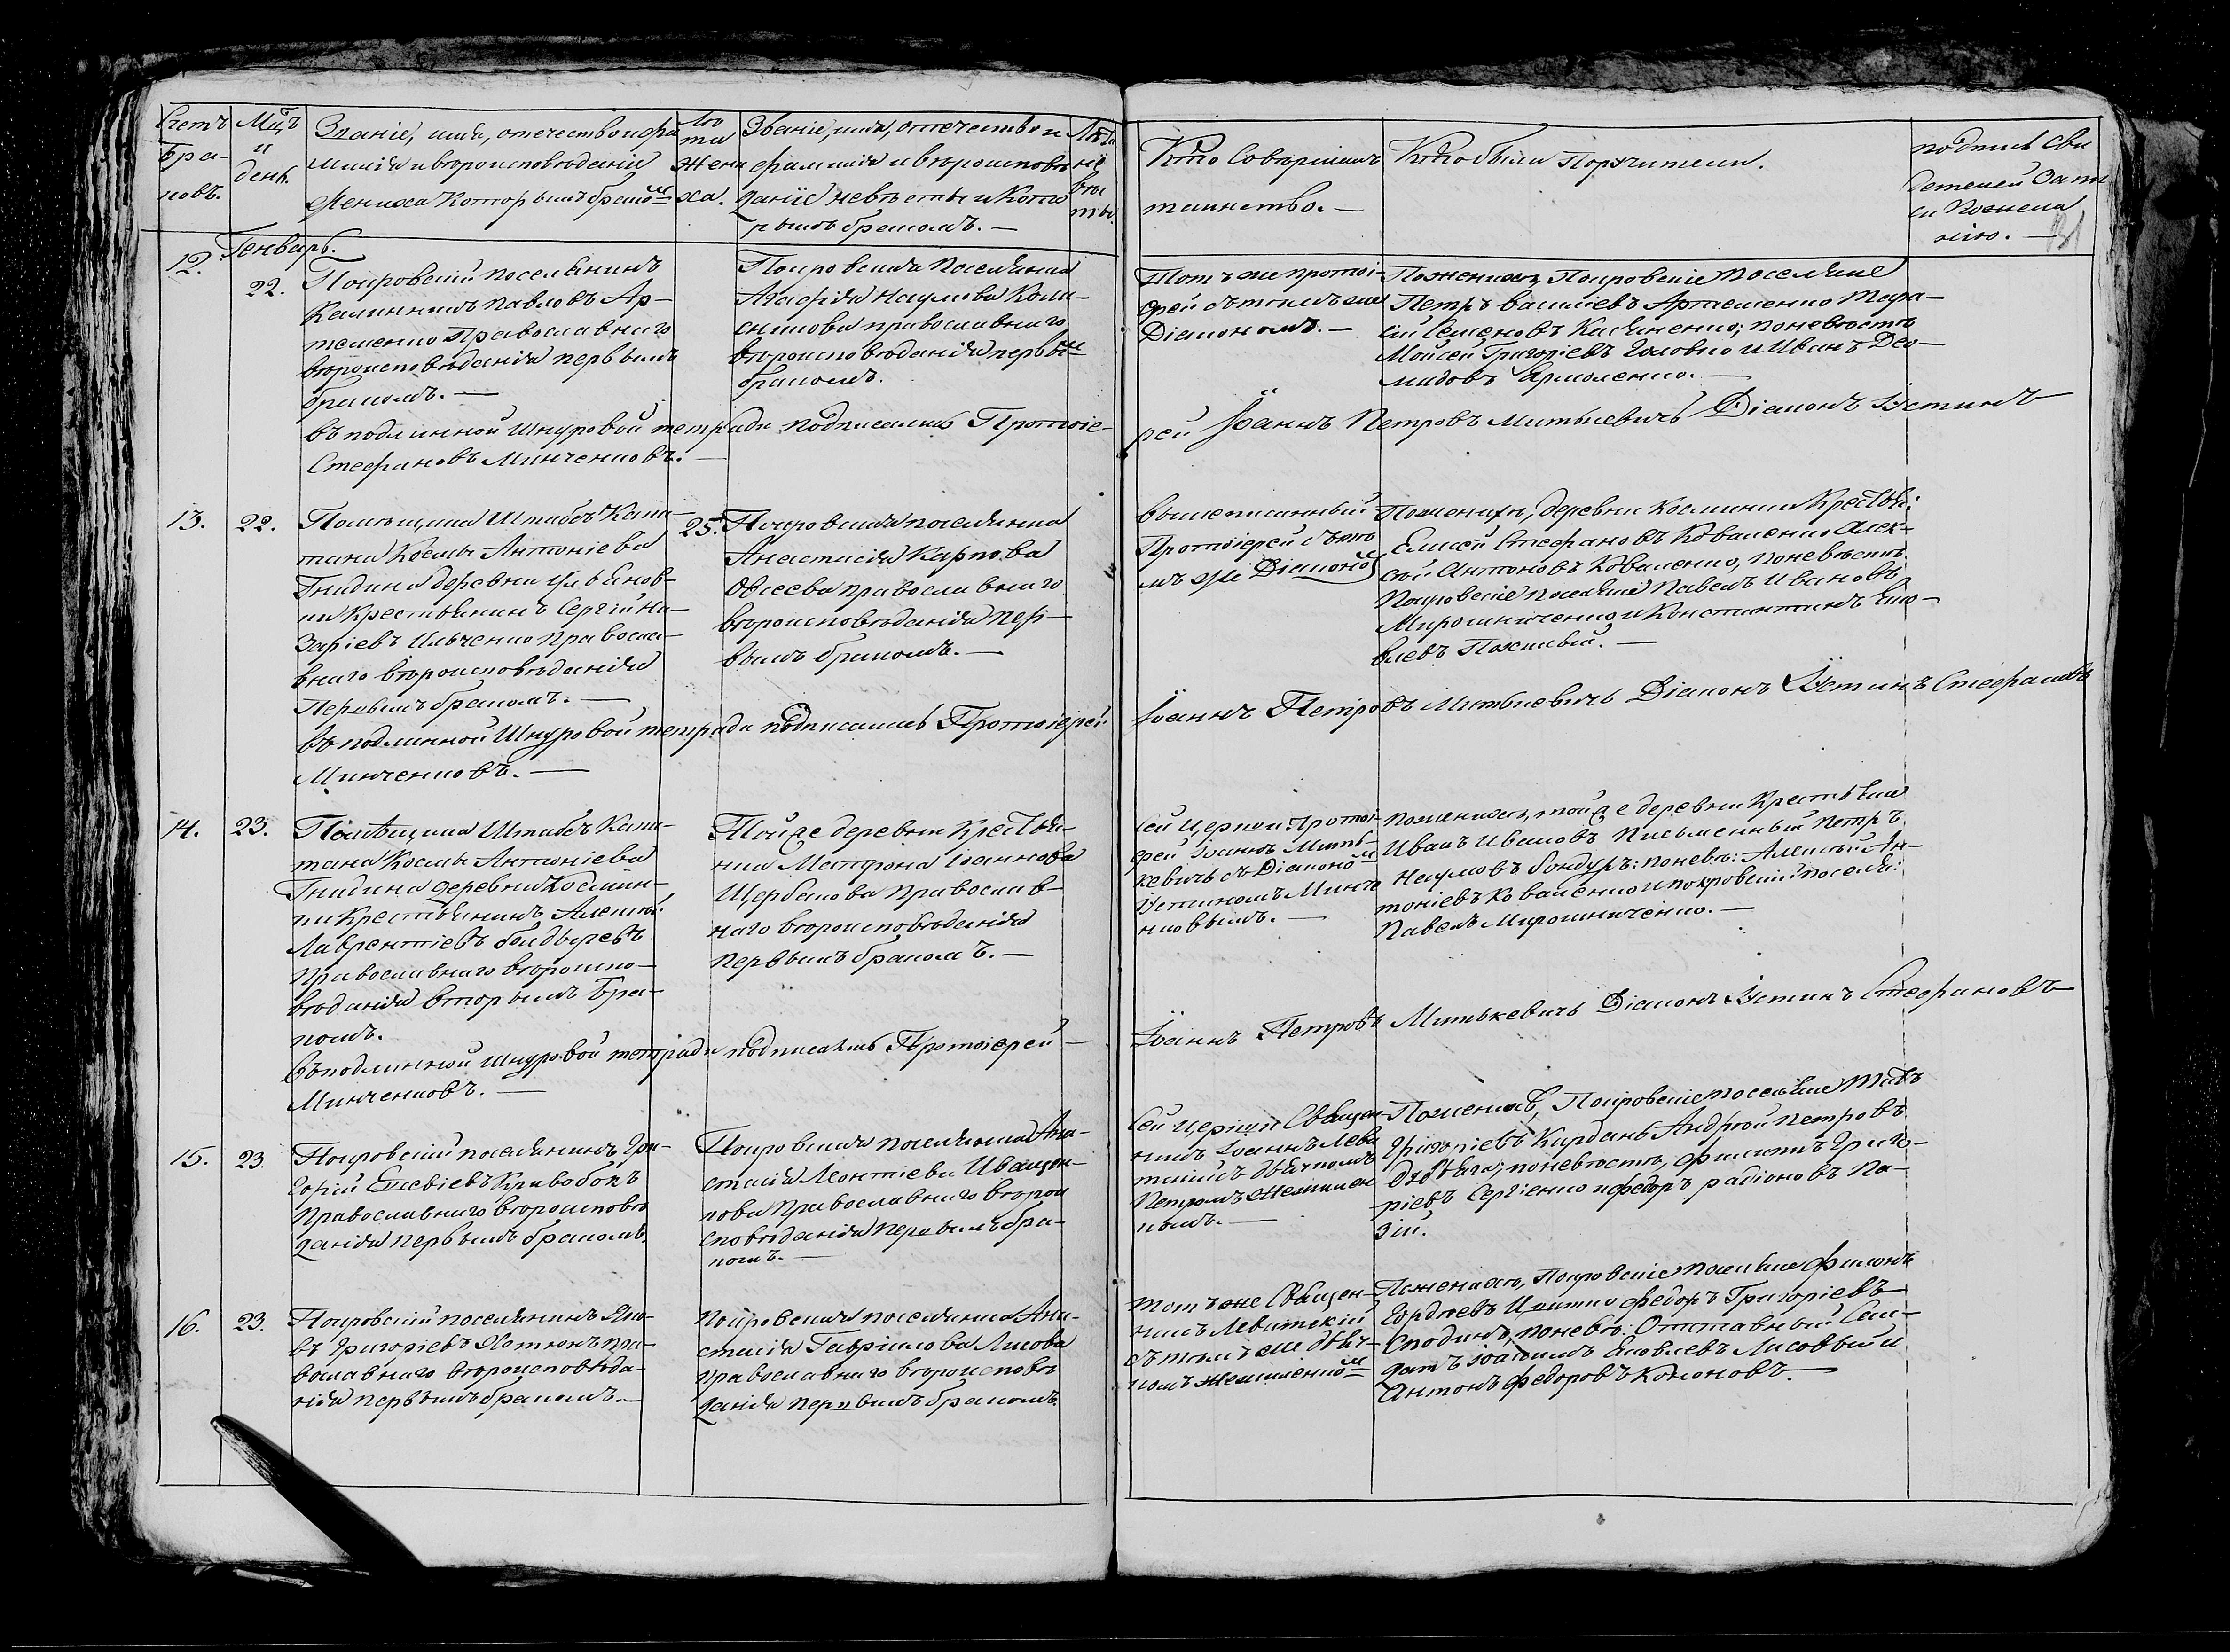 Счетъ
бра-
ковъ.
Мцъ
и
день.
Званіе, имя, отечество и фа
милія и вѣроисповѣданіе
жениха которымъ бракомъ
Лѣ
та
жени
ха.
Званіе, имя, отечество и
фамилія и вѣроисповѣ
даніе невѣсты и кото
рымъ бракомъ. —
Лѣта
не
вѣс
ты.
Кто совершилъ
таинство. —
Кто были поручители.
подпись сви
детелей запи
си по жела
нію. —
12.
Генварь.
22.
Покровскій поселянинъ
Калинникъ Павловъ Ар-
теменко православнаго
вѣроисповѣданія первымъ
бракомъ. —
Покровская поселянка
Агафія Наумова Кола-
сникова православнаго
вѣроисповѣданія первымъ
бракомъ.
Тотъ же протоі-
ерей съ тѣмъ же
Діакономъ. —
По женихѣ, Покровскіе поселяне
Петръ Васильевъ Артеменко
Семеновъ Касьяненко; по невѣстѣ
Моисей Григоріевъ Головко и Иванъ Де-
мидовъ Ермоленко. —
въ подлинной шнуровой тетради подписались Протоіе-
рей Іоаннъ Петровъ Митькевичъ Діаконъ Устинъ
Стефановъ Минченковъ. —
13.
22.
Помѣщика Штабсъ Капи-
тана Косьмы Антоніева
Гнидина деревни Ульянов-
ки крестьянинъ Сергій На-
заріевъ Ильченко правосла-
внаго вѣроисповѣданія
первымъ бракомъ. —
25.
Покровская поселянка
Анастасія Карпова
Овсеева православнаго
вѣроисповѣданія пер-
вымъ бракомъ. —
вышеписанный
Протоіерей съ тѣ
мъ же Діакономъ
По женихѣ, деревни Косминки крестья:
Елисей Стефановъ Коваленко Алек-
сѣй Антоновъ Коваленко, по невѣстѣ
Покровскіе поселяне Павелъ Ивановъ
Мирошниченко и Константинъ Яко-
влевъ Пожилый. —
въ подлинной шнуровой тетради подписались Протоіерей
Іоаннъ Петровъ Митькевичъ Діаконъ Устинъ Стефановъ
Минченковъ. —
14.
23.
Помѣщика Штабсъ Капи-
тана Косьмы Антоніева
Гнидина деревни Космин-
ки крестьянинъ Алексѣй
Лаврентіевъ Болдыревъ
православнаго вѣроиспо-
вѣданія вторымъ бра-
комъ.
Той же деревни крестья-
нка Матрона Іоаннова
Щербакова православ-
наго вѣроисповѣданія
первымъ бракомъ. —
Сей церкви протоі-
ерей Іоаннъ Мить-
кевичъ съ Діакономъ
Устиномъ Минче
нковымъ. —
по женихѣ, той же деревни крестьяне
Иванъ Ивановъ Письменный Петръ
Наумовъ Бондуръ: по невѣ: Алексѣй Ан-
тоніевъ Коваленко и покровскій поселя:
Павелъ Мирошниченко. —
въ подлинной шнуровой тетради подписались Протоіерей —
Іоаннъ Петровъ Митькевичъ Діаконъ Устинъ Стефановъ
Минченковъ. —
15.
23.
Покровскій поселянинъ Гри-
горій Евсевіевъ Кривобокъ
православнаго вѣроисповѣ
данія первымъ бракомъ.
Покровская поселянка Ана-
стасія Леонтіева Иващен-
кова православнаго вѣрои
сповѣданія первымъ бра-
комъ. —
Сей церкви Священ-
никъ Іоаннъ Леви
тскій съ дьячкомъ
Петромъ
комъ. —
По женихѣ, Покровскіе поселяне
Григоріевъ Кардань Андрей Петровъ
по невѣстѣ, Филиппъ Григо-
ріевъ Сергіенко и Федоръ Радіоновъ Ла-
зій.
16.
23.
Покровскій поселянинъ Яко-
въ Григоріевъ Хотюнъ пра-
вославнаго вѣроисповѣда-
нія первымъ бракомъ. —
Покровская поселянка Ана-
стасія Гаврилова Лисова
православнаго вѣроисповѣ
данія первымъ бракомъ.
Тотъ же Священ-
никъ Левитскій
съ тѣмъ же дьяч-
комъ
По женихѣ, Покровскіе поселяне Филонъ
Гордѣевъ Федоръ Григоріевъ
по невѣ: Отставный Сол-
датъ Іоакимъ Яковлевъ Лисовый и
Антонъ Федоровъ Кононовъ. —